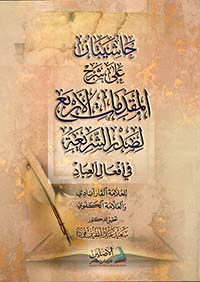 حاشيتان
على شرح
المقدمات الأربع
لصدر الشريعة
في أفعال العباد
للعلامة القازآبادي
والعلامة الكلنبوي
تحقيق الدكتور
الأصلين